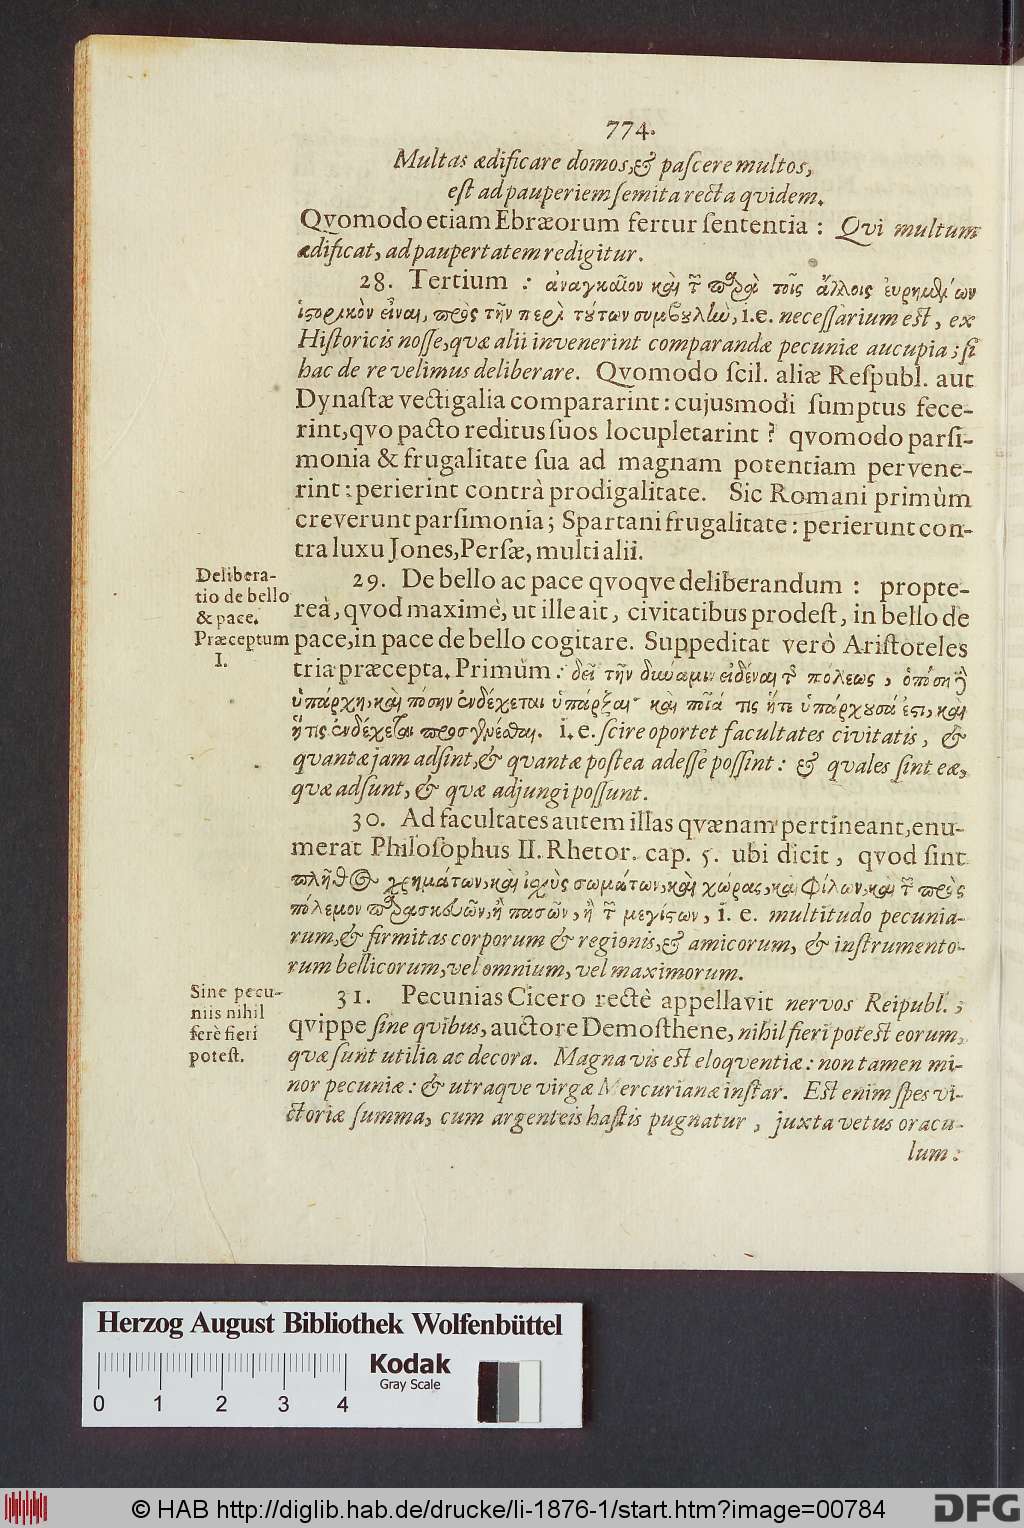 774.
Multas ædificare domos, & paſcere multos,
eſt ad pauperiem ſemita recta qvidem.
Qvomodo etiam Ebræorum fertur ſententia : Qvi multum
ædificat, ad paupertatem redigitur.
28. Tertium : ἀναγκαῖον καὶ τ παρὰ τοῖς ἄλλοις εὑρημένων
ἱςορικὸν εἶναι, πρὸς τὴν περὶ τούτων συμβουλὴν, i.e. neceſſarium est, ex
Hiſtoricis noſſe, quæ alii invenerint comparandæ pecuniæ aucupia; ſi
hac de re velimus deliberare. Qvomodo ſcil. aliæ Reſpubl. aut
Dynaſtæ vectigalia compararint: cujusmodi ſumptus fece-
rint, qvo pacto reditus ſuos locupletarint ? qvomodo parſi-
monia & frugalitate ſua ad magnam potentiam pervene-
rint: perierint contrà prodigalitate. Sic Romani primùm
creverunt parſimonia; Spartani frugalitate: perierunt con-
tra luxu Jones, Perſæ, multi alii.
Delibera-
tio de bello
& pace.
Præceptum
I.
29. De bello ac pace qvoqve deliberandum : propte-
reà, qvod maximè, ut ille ait, civitatibus prodeſt, in bello de
pace, in pace de bello cogitare. Suppeditat verò Ariſtoteles
tria præcepta. Primùm: δεῖ τὴν δύναμιν εἰδέναι τ πόλεως, ὁπόση
ὑπάρχη, καὶ πόσην ἐνδέχεται ὑπάρξαι· καὶ ποῖά τις ἥτε ὑπάρχουσά ἐςι, καὶ
ἥτις ἐνδέχεται προσγενέσθαι. i. e. ſcire oportet facultates civitatis, &
quantæ jam adſint, & quantæ poſtea adeſſe poſſint: & quales ſint eæ,
quæ adſunt, & quæ adjungi poſſunt.
30. Ad facultates autem illas qvænam pertineant, enu-
merat Philoſophus II. Rhetor. cap. 5. ubi dicit, qvod ſint
πλῆθος χρημάτων, καὶ ἰχὺς σωμάτων, καὶ χώρας, καὶ φίλων, καὶ τ πρὸς
πόλεμον παρασκευῶν, ἢ πασῶν, ἢ τ μεγίςων, i. e. multitudo pecunia-
rum, & firmitas corporum & regionis, & amicorum, & inſtrumento-
rum bellicorum, vel omnium, vel maximorum.
Sine pecu-
niis nihil
ferè fieri
poteſt.
31. Pecunias Cicero rectè appellavit nervos Reipubl. ;
qvippe ſine qvibus, auctore Demoſthene, nihil fieri potest eorum,
quæ ſunt utilia ac decora. Magna vis est eloqventiæ: non tamen mi-
nor pecuniæ: & utraque virgæ Mercurianæ inſtar. Est enim ſpes vi-
ctoriæ ſumma, cum argenteis haſtis pugnatur, juxta vetus oracu-
lum:
Herzog August Bibliothek Wolfenbüttel
Kodak
Gray Scale
0 1 2 3 4
© HAB http://diglib.hab.de/drucke/li-1876-1/start.htm?image=00784
DFG